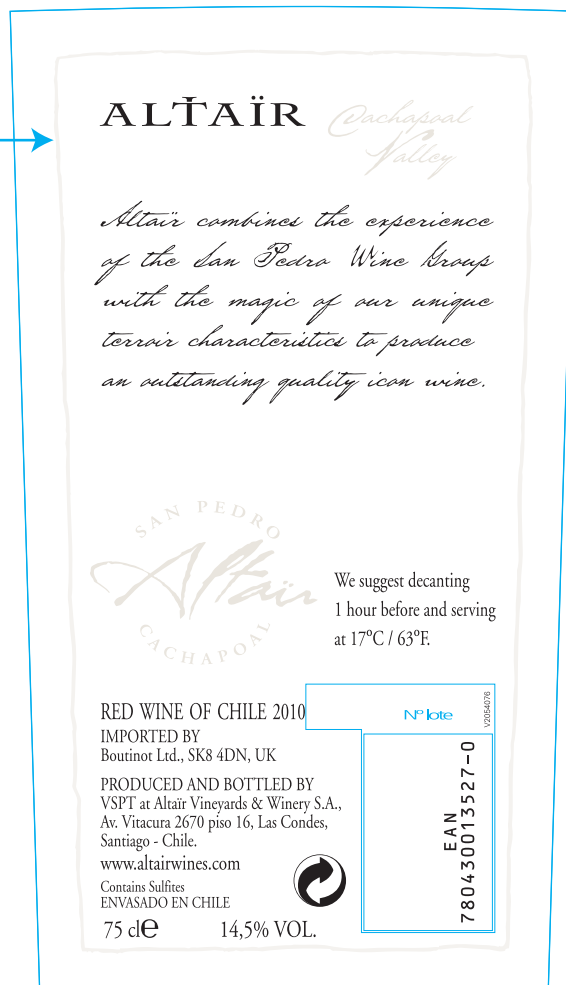 ALTAÏR
Cachapoal
Valley
Altaïr combines the experience
of the San Pedro Wine Group
with the magic of our unique
terroir characteristics to produce
an outstanding quality icon wine.
SAN PEDRO
Altaïr
CACHAPOAL
We suggest decanting
1 hour before and serving
at 17ºC / 63ºF.
RED WINE OF CHILE 2010
IMPORTED BY
Boutinot Ltd., SK8 4DN, UK
PRODUCED AND BOTTLED BY
VSPT at Altaïr Vineyards & Winery S.A.,
Av. Vitacura 2670 piso 16, Las Condes,
Santiago - Chile.
www.altairwines.com
Contains Sulfites
ENVASADO EN CHILE
75 cl e 14,5% VOL.
Nº lote
V2054076
EAN
7804300013527-0